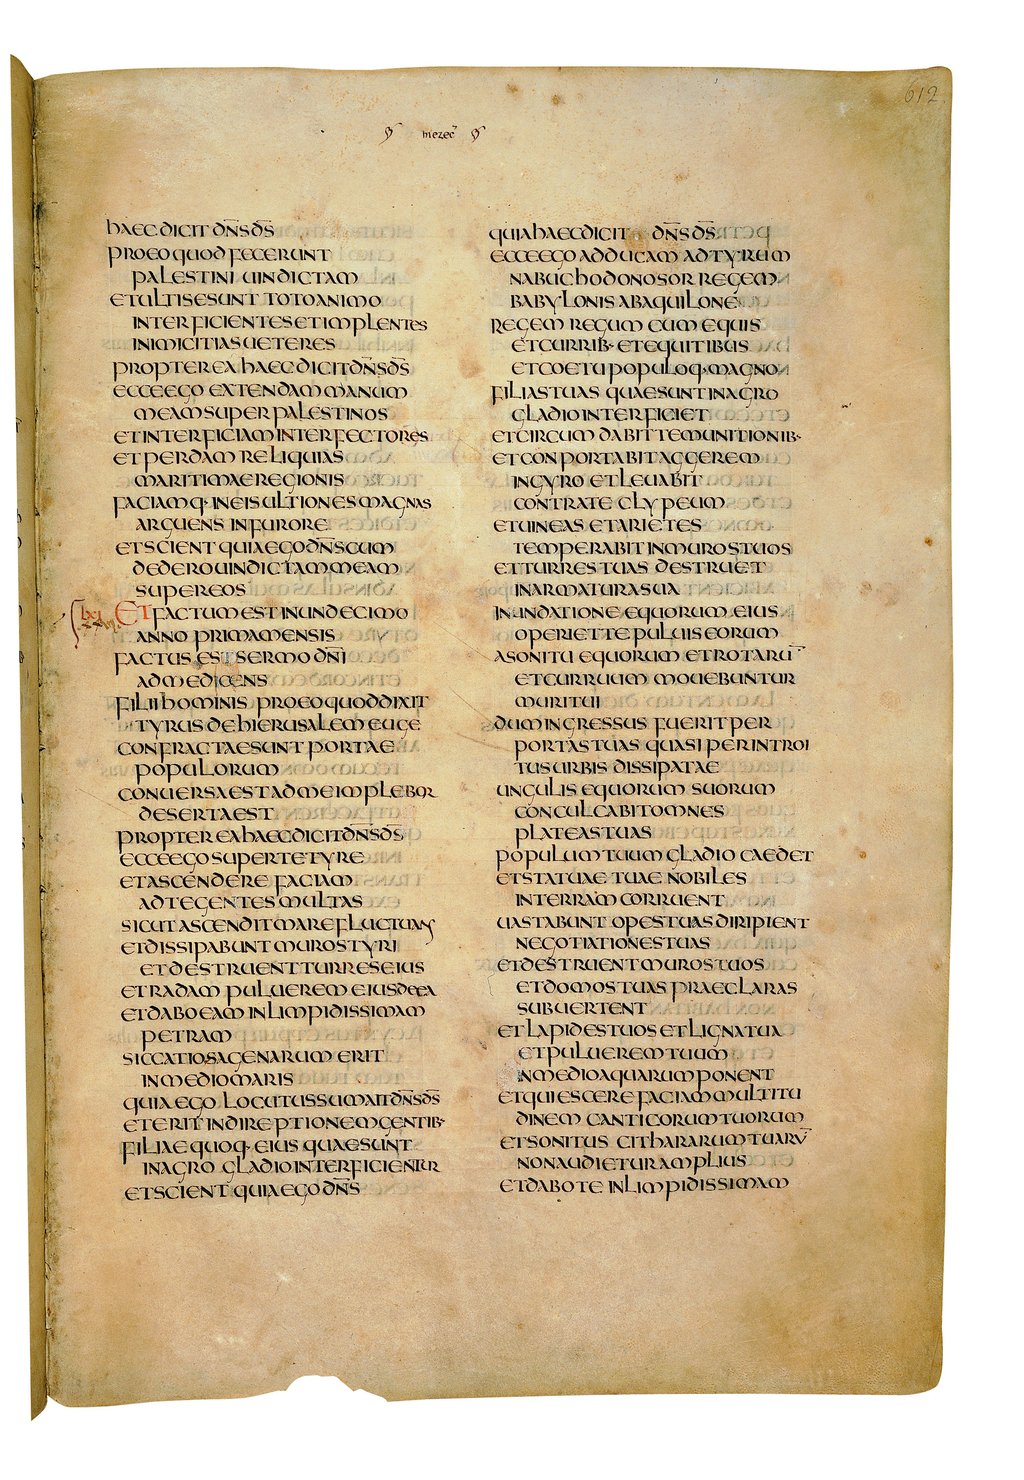 612
inezec
haec dicit dn̄s d̄s
pro eo quod fecerunt
palestini uindictam
et ulti se sunt toto animo
interficientes et implentes
inimicitias ueteres
propterea haec dicit dn̄s d̄s
ecce ego extendam manum
meam super palestinos
et interficiam interfectores
et perdam reliquias
maritimae regionis
faciamq· in eis ultiones magnas
arguens in furore
et scient quia ego dn̄s cum
dedero uindictam meam
super eos
et factum est in undecimo
anno prima mensis
factus est sermo dn̄i
ad me dicens
filii hominis pro eo quod dixit
tyrus de hierusalem euge
confractae sunt portae
populorum
conuersa est ad me implebor
deserta est
propterea haec dicit dn̄s d̄s
ecce ego super te tyre
et ascendere faciam
ad te gentes multas
sicut ascendit mare fluctuans
et dissipabunt muros tyri
et destruent turres eius
et radam puluerem eius de ea
et dabo eam in limpidissimam
petram
siccatio sagenarum erit
in medio maris
quia ego locutus sum ait dn̄s d̄s
et erit in direptionem gentib·
filiae quoq· eius quae sunt
in agro gladio interficientur
et scient quia ego dn̄s
quia haec dicit dn̄s d̄s
ecce ego adducam ad tyrum
nabuchodonosor regem
babylonis ab aquilone
regem regum cum equis
et currib· et equitibus
et coetu populoq· magno
filias tuas quae sunt in agro
gladio interficiet
et circumdabit te munitionib·
et conportabit aggerem
in gyro et leuabit
contra te clypeum
et uineas et arietes
temperabit in muros tuos
et turres tuas destruet
in armatura sua
inundatione equorum eius
operiet te puluis eorum
a sonitu equorum et rotarū
et curruum mouebuntur
muri tui
dum ingressus fuerit per
portas tuas quasi per introi
tus urbis dissipatae
ungulis equorum suorum
conculcabit omnes
plateas tuas
populum tuum gladio caedet
et statuae tuae nobiles
in terram corruent
uastabunt opes tuas diripient
negotiationes tuas
et destruent muros tuos
et domos tuas praeclaras
subuertent
et lapides tuos et ligna tua
et puluerem tuum
in medio aquarum ponent
et quiescere faciam multitu
dinem canticorum tuorum
et sonitus cithararum tuarū
non audietur amplius
et dabo te in limpidissimam